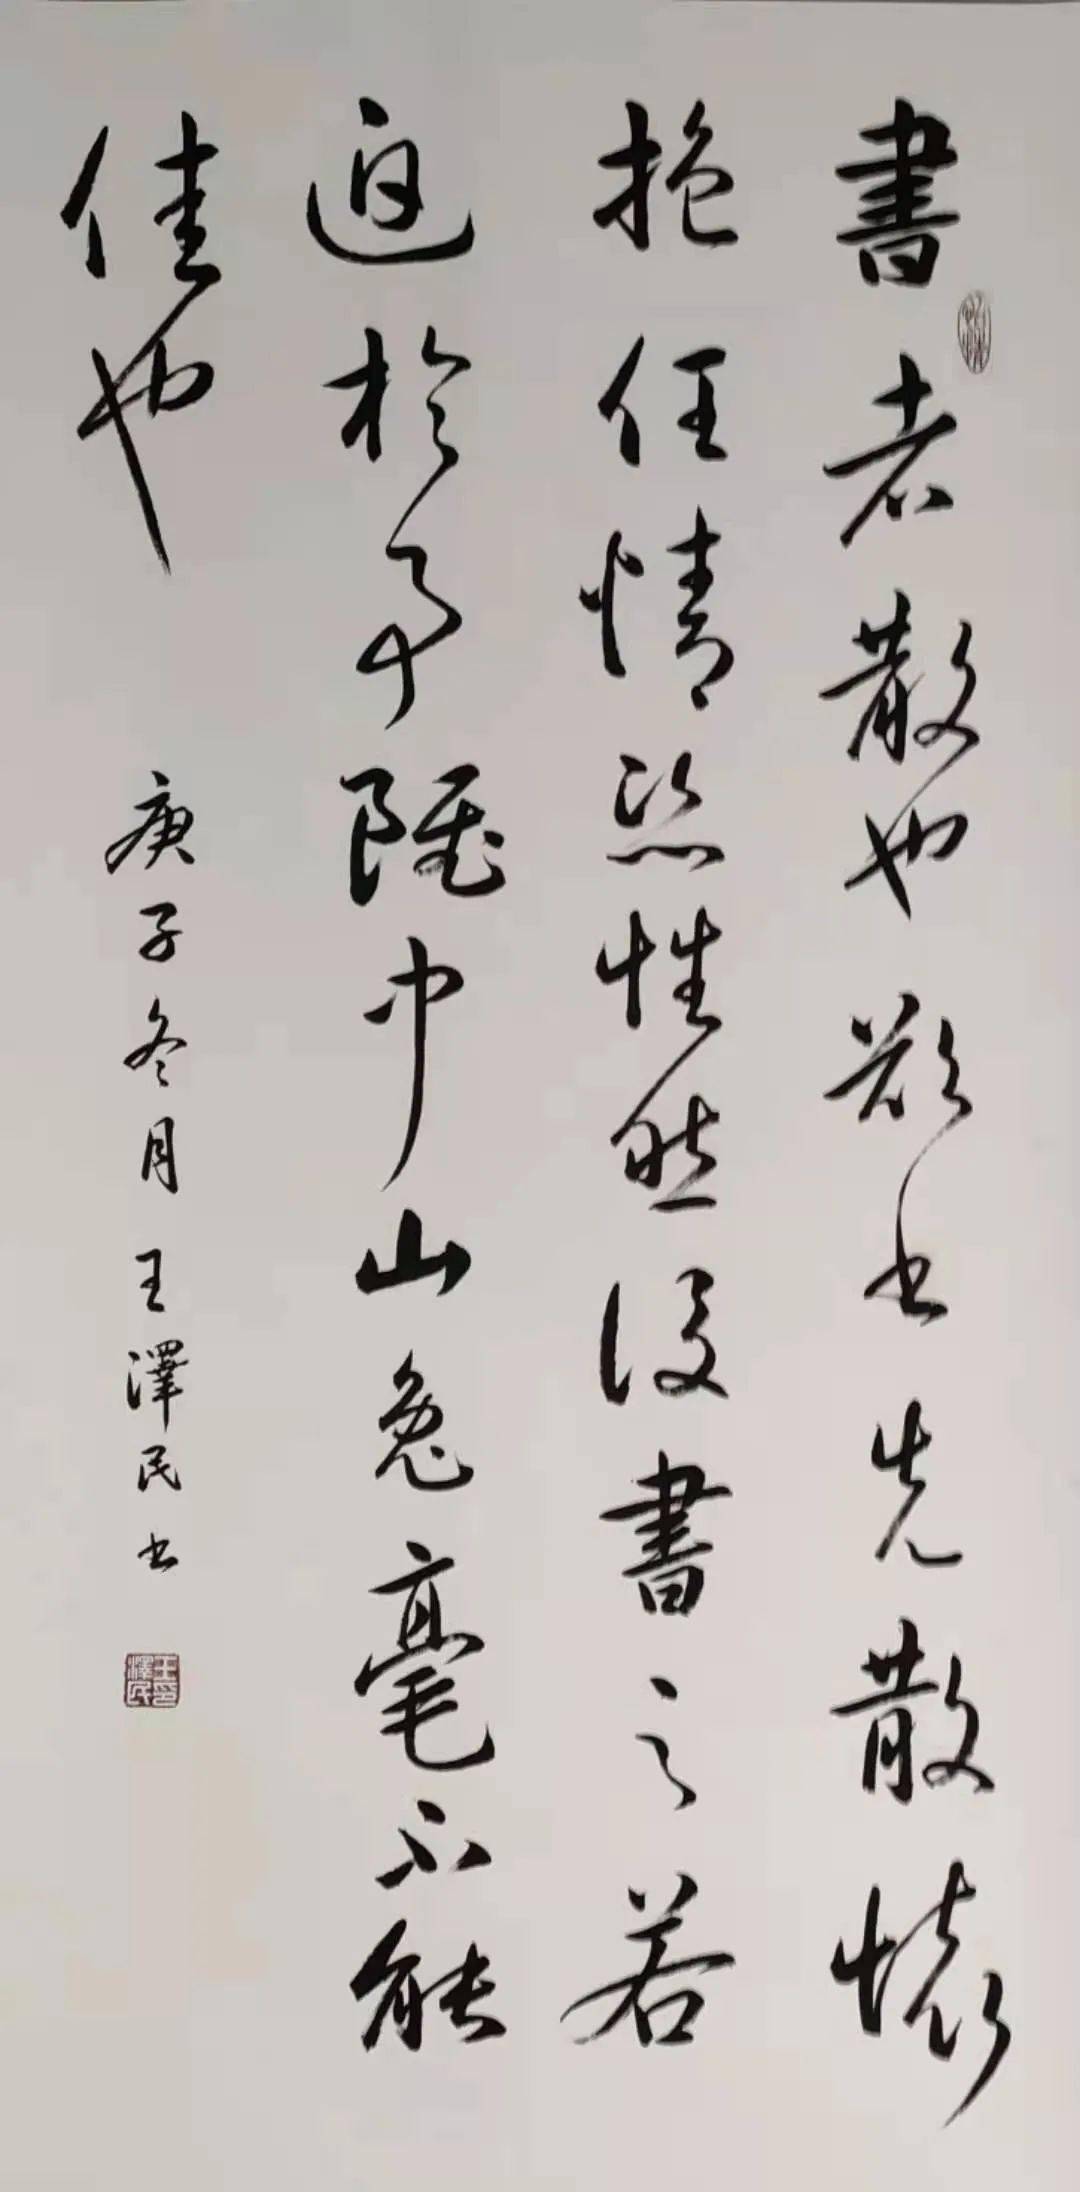 書者散也欲书先散懷
抱任情恣性然後書之若
迫於事雖中山兔毫不能
佳也
庚子冬月王澤民书
王印澤民